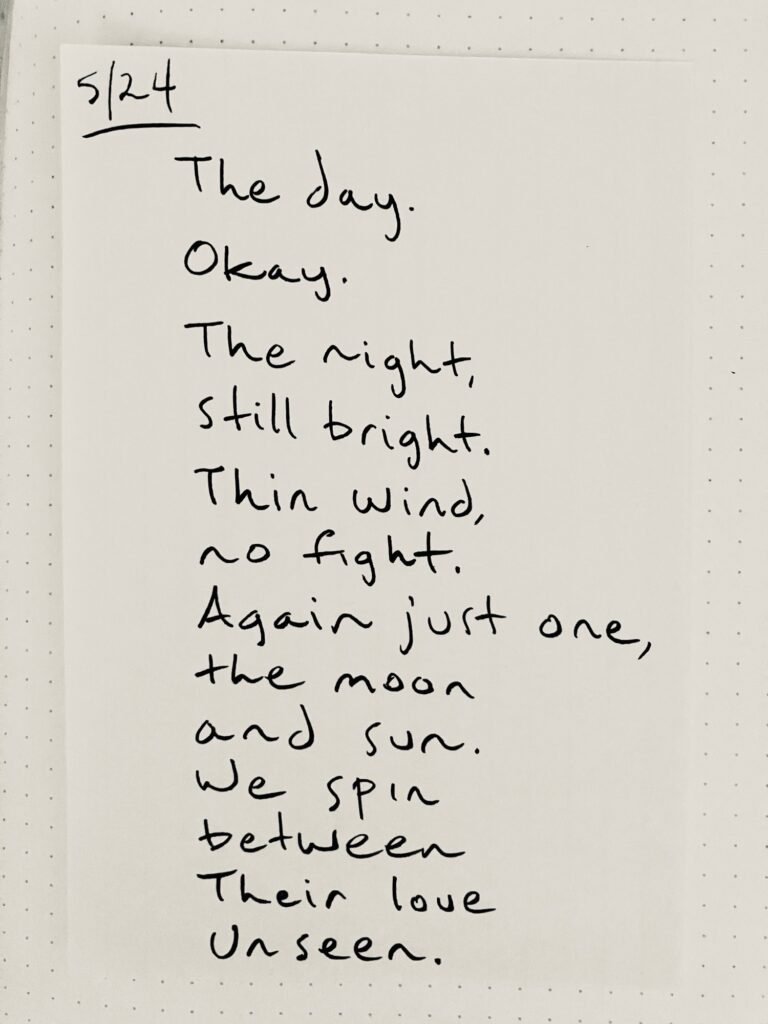 5/24
The day.
Okay.
The night,
still bright.
Thin wind,
no fight.
Again just one,
the moon
and sun.
We spin
between
Their love
Unseen.